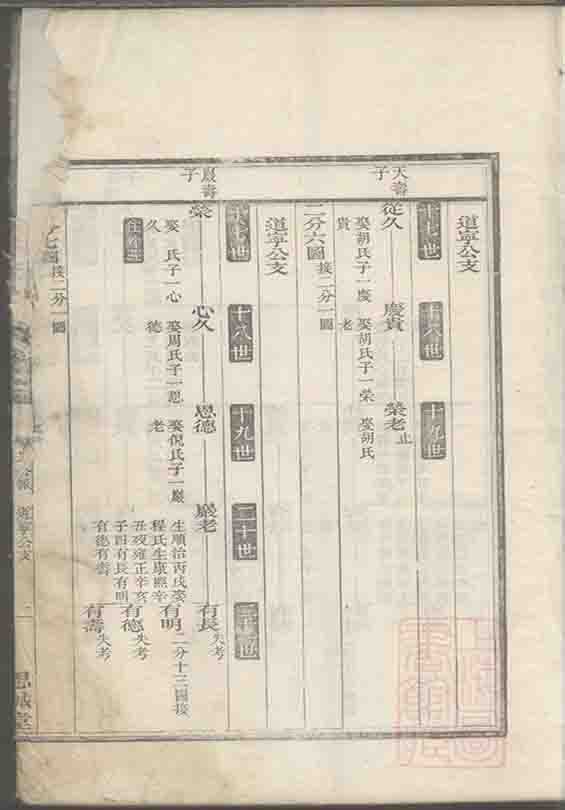 道寧公支
十七世 十八世 十九世
天壽子
從久
娶胡氏子一慶
貴
慶貴
娶胡氏子一榮
老
榮老
止
娶胡氏
二分六圖接二分一圖
道寧公支
十七世 十八世 十九世 二十世
嚴壽子
榮
娶 氏子一心
久
心久
娶周氏子一恩
德
恩德
娶倪氏子一嚴
老
嚴老
生順治丙戌娶
程氏生康熙辛
丑歿雍正辛亥
子四有長有明
有德有壽
有長失考
有明二分十三圖接
有德失考
有壽失考
圖接二分一圖
道寧公支
思誠堂